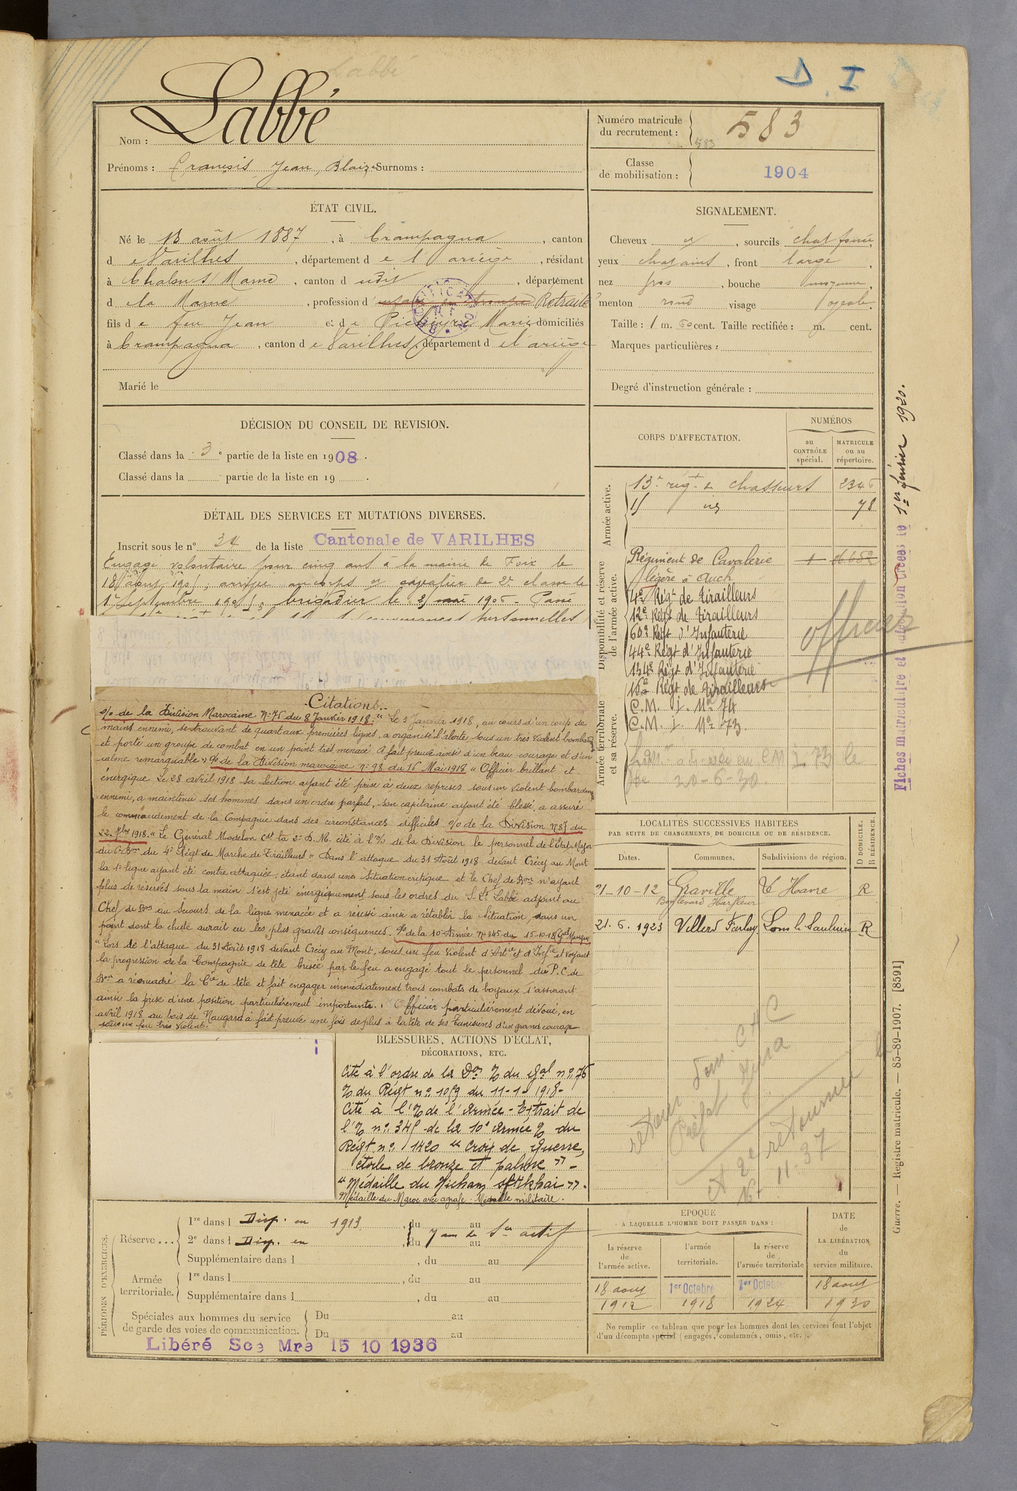 Labbé
D. I
Nom : Labbé
Prénoms : François Jean, Blaize Surnoms :
Numéro matricule du recrutement : 583
Classe de mobilisation : 1904
ÉTAT CIVIL.
Né le 13 août 1887, à Crampagna, canton
d e Varilhes, département d e l'ariège, résidant
à Chalons s/ Marne, canton d udit, département
d e la Marne, profession d' Retraité
fils d e feu Jean et d e Marie domiciliés
à Crampagna, canton d e Varilhes, département d e l'ariège
Marié le
SIGNALEMENT.
Cheveux , sourcils chat foncé,
yeux chatains, front large,
nez gros, bouche moyenne,
menton rond visage ovale.
Taille : 1 m. 60 cent. Taille rectifiée : m. cent.
Marques particulières :
Degré d'instruction générale :
DÉCISION DU CONSEIL DE REVISION.
Classé dans la 3e partie de la liste en 1908.
Classé dans la partie de la liste en 19 .
DÉTAIL DES SERVICES ET MUTATIONS DIVERSES.
Inscrit sous le n° 34 de la liste Cantonale de VARILHES
Engagé volontaire pour cinq ans à la mairie de Foix le
18 août 1905, arrivé au corps et cavalier de 2e classe le
1er septembre 1905, brigadier le 1906. Passé
personnelles
CORPS D'AFFECTATION.
NUMÉROS
au CONTRÔLE spécial.
MATRICULE ou au répertoire.
Armée active.
13e régt de chasseurs
78
Disponibilité et réserve de l'armée active.
Régiment de Cavalerie
légère à Auch
4e Régt de Tirailleurs
12e Régt de Tirailleurs
60e Régt d'Infanterie
44e Régt d'Infanterie
134e Régt d'Infanterie
10e Régt de Tirailleurs
officier
Armée territoriale et sa réserve.
C.M. J. No 74
C.M. J. No 73
20-6-30
Fiches matriculaire et 1er février 1920.
Citations.
o/o de la Division Marocaine No 75 du 8 Janvier 1918. "Le 5 Janvier 1918, au cours d'un coup de
mains ennemi, se trouvant de quart aux premières lignes, a organisé l'alerte sous un très violent bombardt
et porté un groupe de combat en un point très menacé. A fait preuve ainsi d'un beau courage et d'un
calme remarquable." o/o de la Division marocaine No 98 du 16 Mai 1918 "Officier brillant et
énergique. Le 28 avril 1918 sa section ayant été prise à deux reprises sous un violent bombardemt
ennemi, a maintenu ses hommes dans un ordre parfait, son capitaine ayant été blessé, a assuré
le commandement de la Compagnie dans des circonstances difficiles. o/o de la Division No 87 du
22 7bre 1918. "Le Général Modelon Cdt la 2e D. M. cite à l'O/ de la Division le personnel de l'Etat-Major
du 6e Bon du 4e Régt de Marche de Tirailleurs "Dans l'attaque du 31 Août 1918 devant Crécy au Mont
la 1e ligne ayant été contre attaquée, étant dans une situation critique et le Chef de Bon n'ayant
plus de réserves sous la main s'est jeté énergiquement sous les ordres du S. Lt Labbé adjoint au
Chef de Bon au secours de la ligne menacée et a réussi ainsi à rétablir la situation dans un
point dont la chute aurait eu les plus graves conséquences. o/o de la 10e Armée No 345 du 15-10-18 Gal Mangin
"Lors de l'attaque du 31 Août 1918 devant Crécy au Mont, sous un feu violent d'Artie et d'Infie et voyant
la progression de la Compagnie de tête brisée par le feu a engagé tout le personnel du P.C. de
Bon a réencadré la Cie de tête et fait engager immédiatement trois combats de boyaux s'assurant
ainsi la prise d'une position particulièrement importante. Officier particulièrement dévoué, en
avril 1918 au bois de Hangard a fait preuve une fois de plus à la tête de ses Tunisiens d'un grand courage
sous un feu très violent.
LOCALITÉS SUCCESSIVES HABITÉES
PAR SUITE DE CHANGEMENTS DE DOMICILE OU DE RÉSIDENCE.
Dates. Communes. Subdivisions de région. D DOMICILE. R RÉSIDENCE.
21-10-12 Graville Le Havre R
Boulevard Harfleur
21.6.1923 Villers Farlay Lons le Saulnier R
retour Dom. C+C
Préfet Jura
et retourner
11-37
BLESSURES, ACTIONS D'ÉCLAT,
DÉCORATIONS, ETC.
Cité à l'ordre de la Don O/ du Gal no 75
O/ du Régt no 1059 du 11-1-1918-
Cité à l'O/ de l'Armée - Extrait de
l'O/ no 345 de la 10e Armée O/ du
Régt no 1420 "Croix de Guerre,
étoile de bronze et palme" -
"Médaille du Nicham Iftikhar".
Médaille du Maroc avec agrafe - Médaille militaire.
PÉRIODES D'EXERCICES.
Réserve ...
1re dans l Disp. en 1913, du au
2e dans l Disp. en , du au
7 ans de Sce actif
Supplémentaire dans l , du au
Armée territoriale.
1re dans l , du au
Supplémentaire dans l , du au
Spéciales aux hommes du service de garde des voies de communication.
Du au
Du au
Libéré Sce Mre 15 10 1936
EPOQUE
A LAQUELLE L'HOMME DOIT PASSER DANS :
la réserve de l'armée active.
l'armée territoriale.
la réserve de l'armée territoriale
DATE de LA LIBÉRATION du service militaire.
18 août 1912
1er Octobre 1918
1er Octobre 1924
18 août 1930
Ne remplir ce tableau que pour les hommes dont les services font l'objet
d'un décompte spécial (engagés, condamnés, omis, etc.)
Guerre. — Registre matricule. — 85-89-1907. [8591]